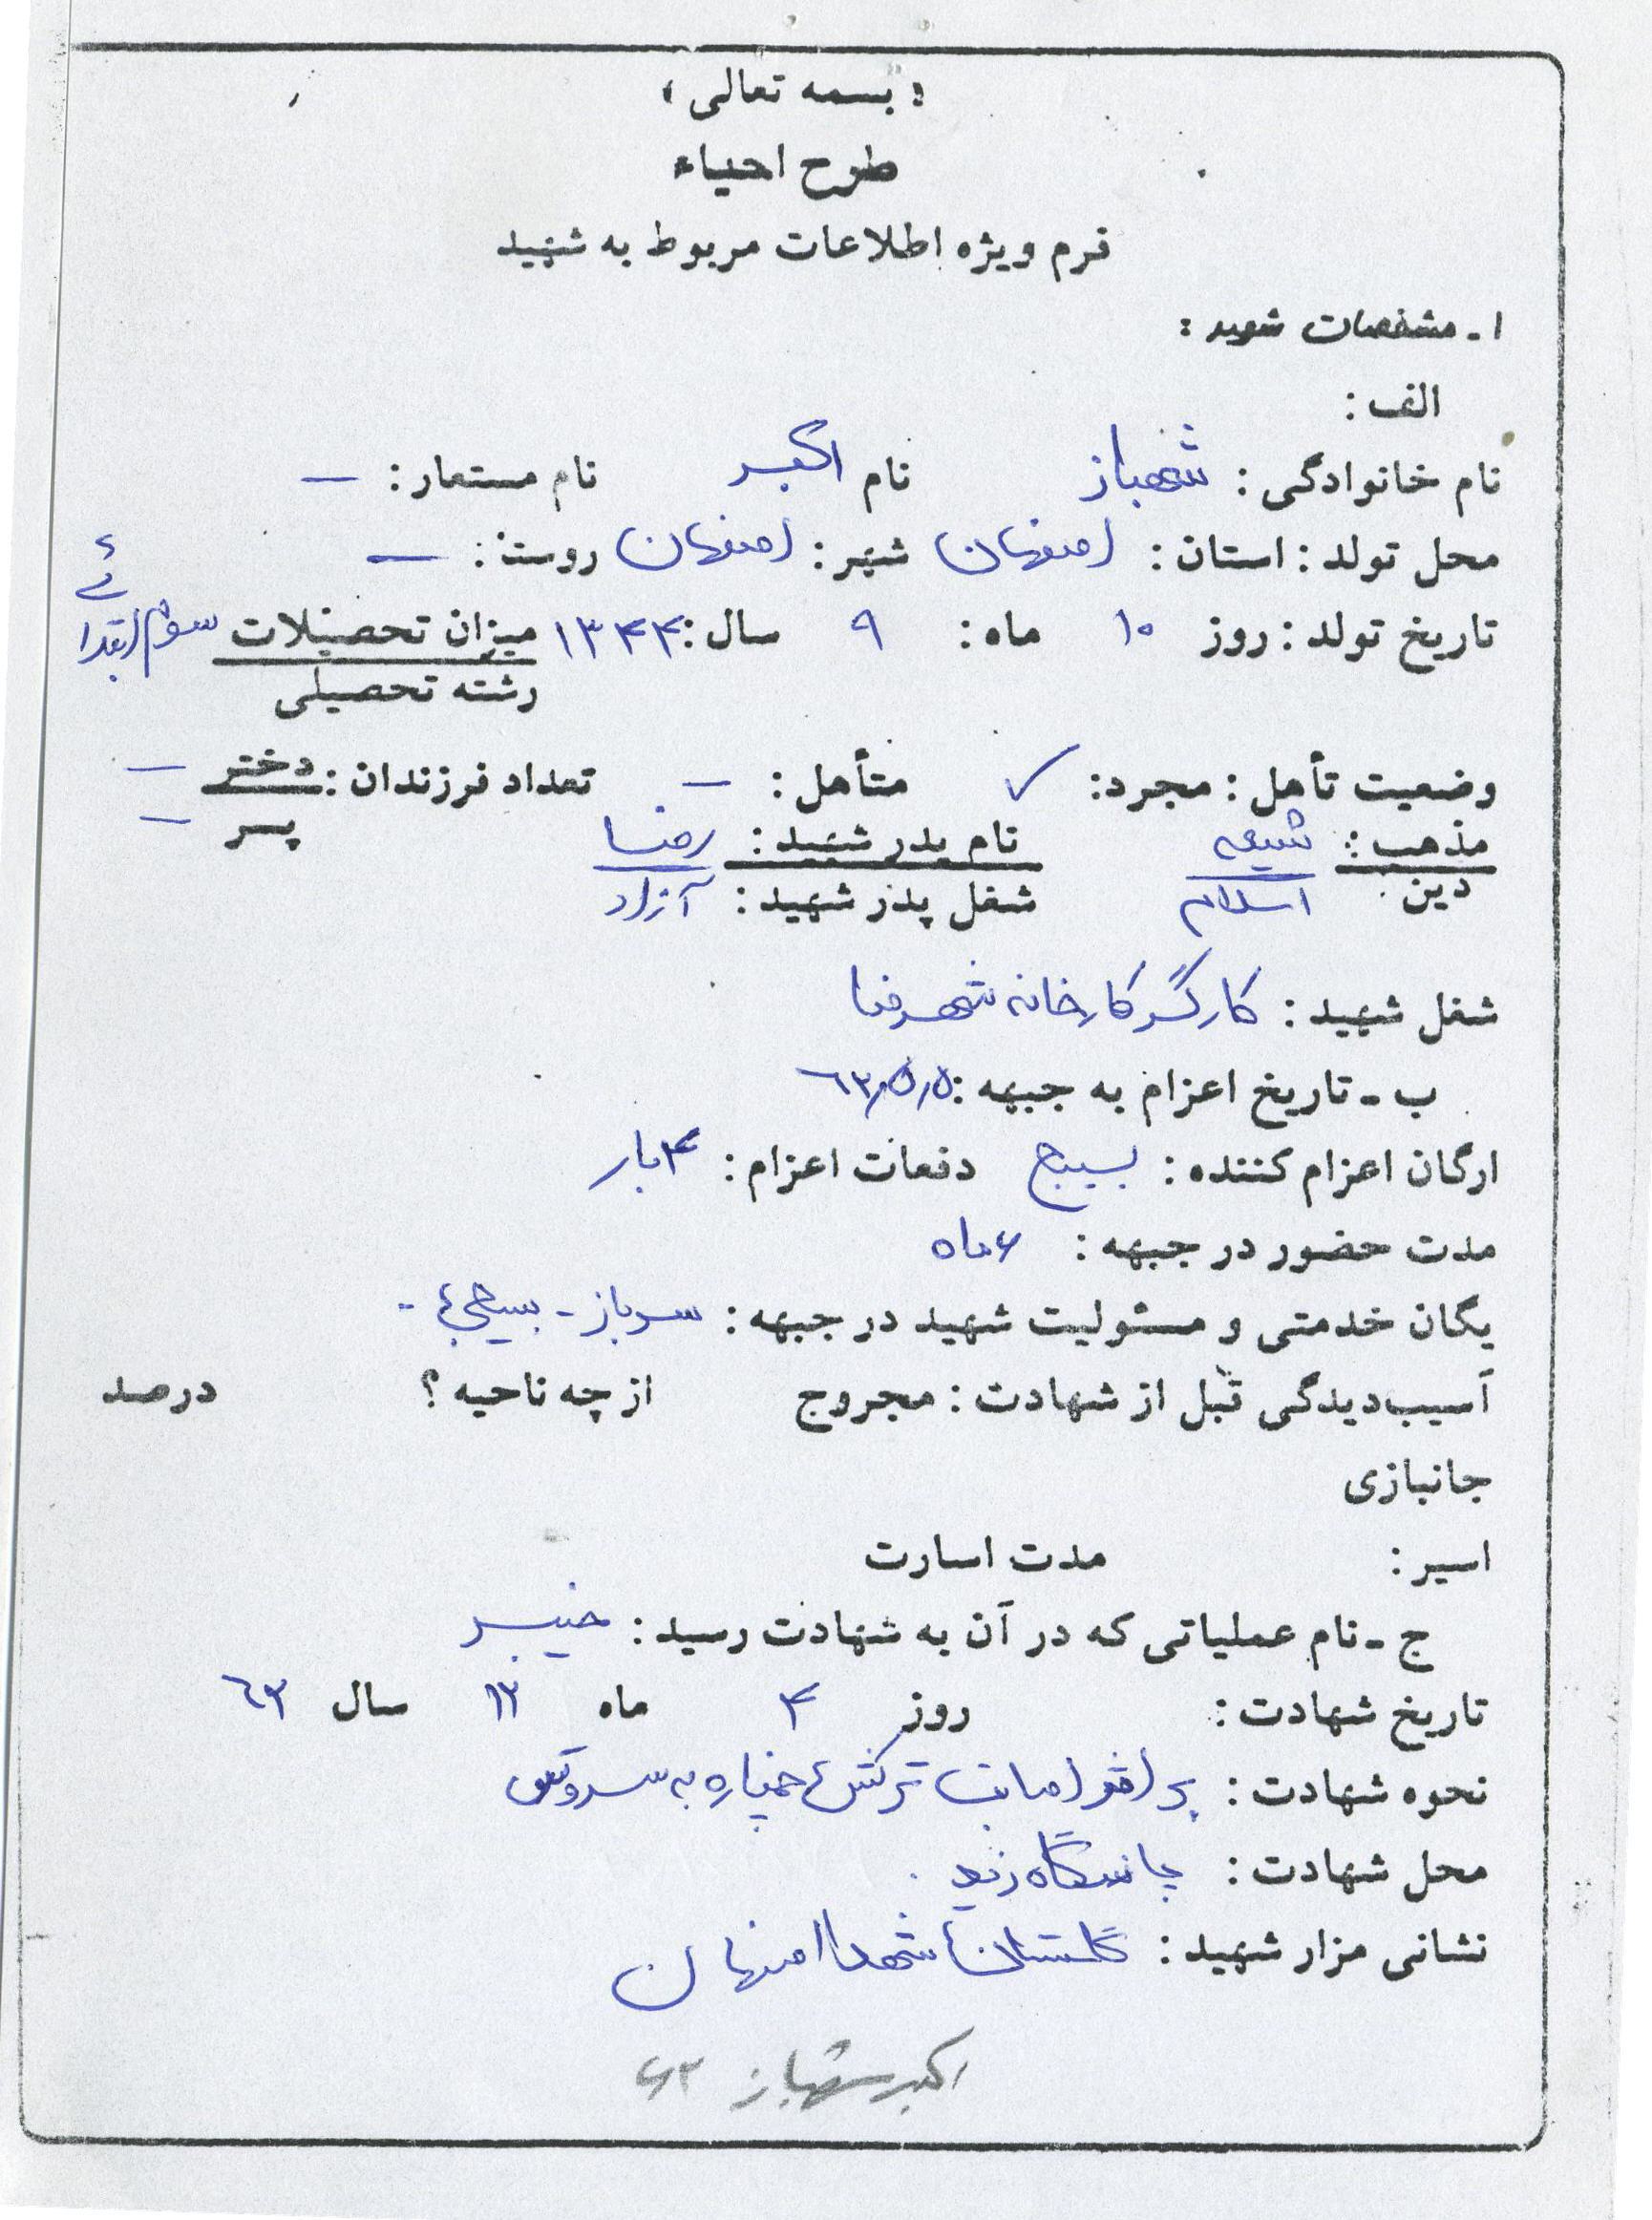 «بسمه تعالی»
طرح احیاء
فرم ویژه اطلاعات مربوط به شهید
۱ـ مشخصات شهید :
الف :
نام خانوادگی : شهباز نام اکبر نام مستعار : —
محل تولد : استان : اصفهان شهر : اصفهان روستا : —
تاریخ تولد : روز ۱۰ ماه : ۹ سال : ۱۳۴۴ میزان تحصیلات سوم ابتدائی
رشته تحصیلی
وضعیت تأهل : مجرد : ✓ متأهل : — تعداد فرزندان : دختر —
پسر —
مذهب : شیعه نام پدر شهید : رضا
دین : اسلام شغل پدر شهید : آزاد
شغل شهید : کارگر کارخانه
ب ـ تاریخ اعزام به جبهه :
ارگان اعزام کننده : بسیج دفعات اعزام : ۴ بار
مدت حضور در جبهه : ۶ ماه
یگان خدمتی و مسئولیت شهید در جبهه : سرباز - بسیجی -
آسیب‌دیدگی قبل از شهادت : مجروح از چه ناحیه ؟ درصد
جانبازی
اسیر : مدت اسارت
ج ـ نام عملیاتی که در آن به شهادت رسید : خیبر
تاریخ شهادت : روز ۴ ماه ۱۲ سال ۶۲
نحوه شهادت : بر اثر اصابت ترکش خمپاره به سر و
محل شهادت : پاسگاه زید .
نشانی مزار شهید : گلستان شهدا اصفهان
اکبر شهباز ۶۲